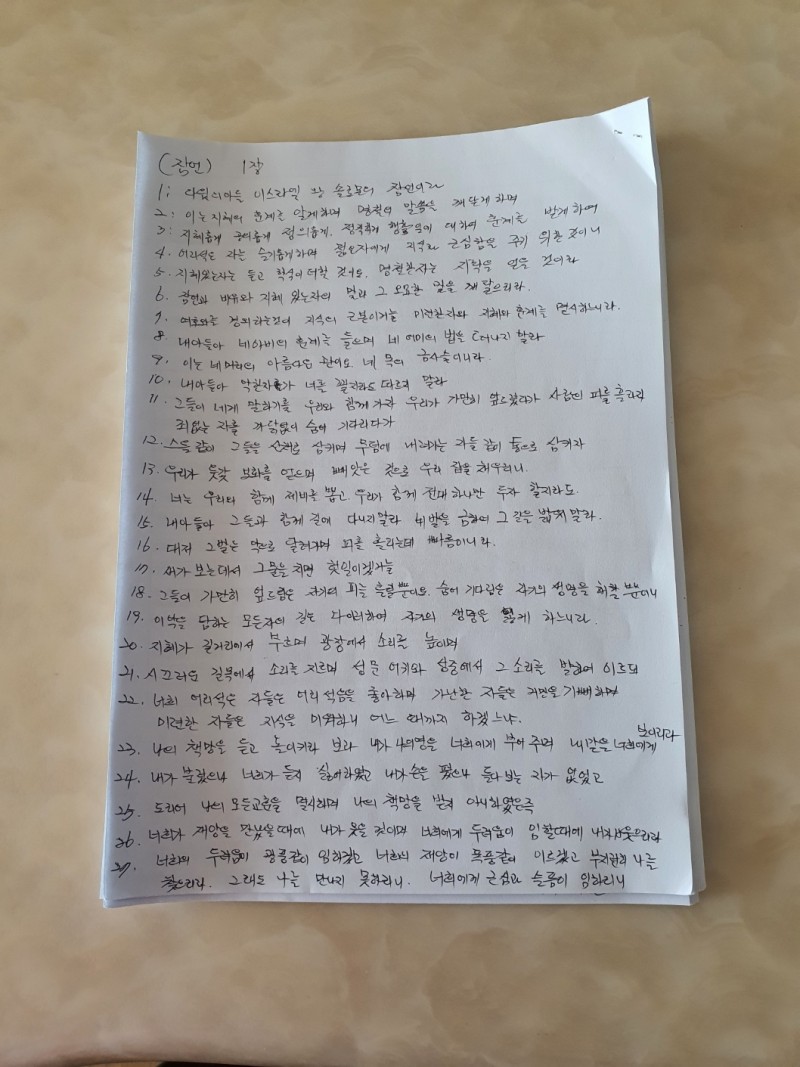 (잠언) 1장
1. 다윗의아들 이스라엘 왕 솔로몬의 잠언이라
2. 이는 지혜와 훈계를 알게하며 명철의 말씀을 깨닫게 하며
3. 지혜롭게 공의롭게 정의롭게, 정직하게 행할일에 대하여 훈계를 받게 하며
4. 어리석은 자는 슬기롭게하며 젊은자에게 지식과 근심함을 주기 위한 것이니
5. 지혜있는자는 듣고 학식이 더할 것이요, 명철한자는 지략을 얻을 것이라
6. 잠언과 비유와 지혜 있는자의 말과 그 오묘한 말을 깨 달으리라.
7. 여호와를 경외하는것이 지식의 근본이거늘 미련한자와 지혜와 훈계를 멸시하느니라.
8. 내아들아 네아비의 훈계를 들으며 네 어미의 법을 떠나지 말라
9. 이는 네머리의 아름다운 관이요. 네 목의 금사슬이니라.
10. 내아들아 악한자가 너를 꾈지라도 따르지 말라
11. 그들이 네게 말하기를 우리와 함께 가자 우리가 가만히 엎드렸다가 사람의 피를 흘리자
죄없는 자를 까닭없이 숨어 기다리다가
12. 스올 같이 그들을 산채로 삼키며 무덤에 내려가는 자들 같이 통으로 삼키자
13. 우리가 온갖 보화를 얻으며 빼앗은 것으로 우리 집을 채우리니.
14. 너는 우리와 함께 제비를 뽑고 우리가 함께 전대 하나만 두자 할지라도.
15. 내아들아 그들과 함께 길에 다니지말라 네 발을 금하여 그 길을 밟지 말라.
16. 대저 그발은 악으로 달려가며 피를 흘리는데 빠름이니라.
17. 새가 보는데서 그물을 치면 헛일이겠거늘
18. 그들이 가만히 엎드림은 자기의 피를 흘릴뿐이요. 숨어 기다림은 자기의 생명을 해할 뿐이니
19. 이익을 탐하는 모든자의 길은 다 이러하여 자기의 생명을 잃게 하느니라.
20. 지혜가 길거리에서 부르며 광장에서 소리를 높이며
21. 시끄러운 길목에서 소리를 지르며 성문 어귀와 성중에서 그 소리를 발하여 이르되
22. 너희 어리석은 자들은 어리석음을 좋아하며 거만한 자들은 거만을 기뻐하며
미련한 자들은 지식을 미워하니 어느 때까지 하겠느냐.
23. 나의 책망을 듣고 돌이키라 보라 내가 나의영을 너희에게 부어 주며 내 말을 너희에게 보이리라
24. 내가 불렀으나 너희가 듣지 싫어하였고 내가 손을 폈으나 돌아 보는 자가 없었고
25. 도리어 나의 모든교훈을 멸시하며 나의 책망을 받지 아니하였은즉
26. 너희가 재앙을 만날때에 내가 웃을 것이며 너희에게 두려움이 임할때에 내가 비웃으리라
27. 너희의 두려움이 광풍같이 임하겠고 너희의 재앙이 폭풍같이 이르겠고 부지런히 나를
찾으리라. 그래도 나를 만나지 못하리니. 너희에게 근심과 슬픔이 임하리니